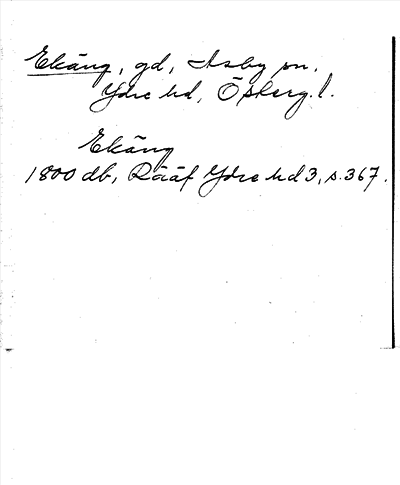 Ekäng, gd, Asby sn,
Ydre hd, Österg. l.
Ekäng
1800 db, Rääf Ydre hd 3, s. 367.